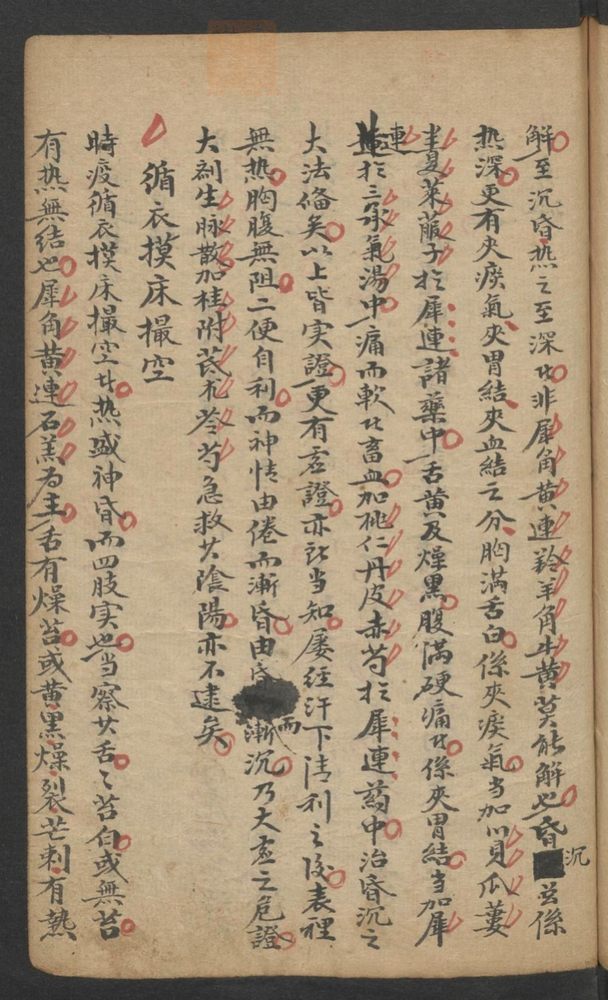 解至沉昏热之至深也非犀角黄連羚羊角牛黄莫能解也昏沉並係
热深更有夹痰氣夹胃結夹血結之分胸满舌白係夹痰氣当加川貝瓜蔞
半夏萊菔子於犀連諸藥中舌黄及燥黑腹满硬痛也係夹胃結当加犀
連於三承氣湯中痛而軟也畜血加桃仁丹皮赤芍於犀連葯中治昏沉之
大法俻矣以上皆实證更有虚證亦当知屡经汗下清利之後表裡
無热胸腹無阻二便自利而神情由倦而漸昏由昏而漸沉乃大虚之危證
大劑生脉散加桂附芪朮苓芍急救其陰陽亦不逮矣
循衣摸床撮空
時疫循衣摸床撮空也热盛神昏而四肢实也当察其舌〻苔白或無苔
有热無结也犀角黄連石羔为主舌有燥苔或黄黑燥裂芒刺有熱